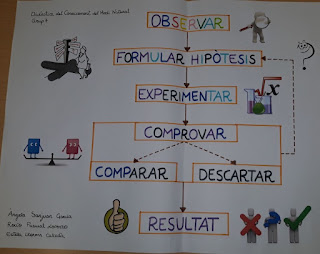 Didàctica del Coneixement del Medi Natural
Grup 4
OBSERVAR
FORMULAR HIPÒTESIS
EXPERIMENTAR
√x
COMPROVAR
COMPARAR
DESCARTAR
RESULTAT
?
Àngela
Rocío Pascual